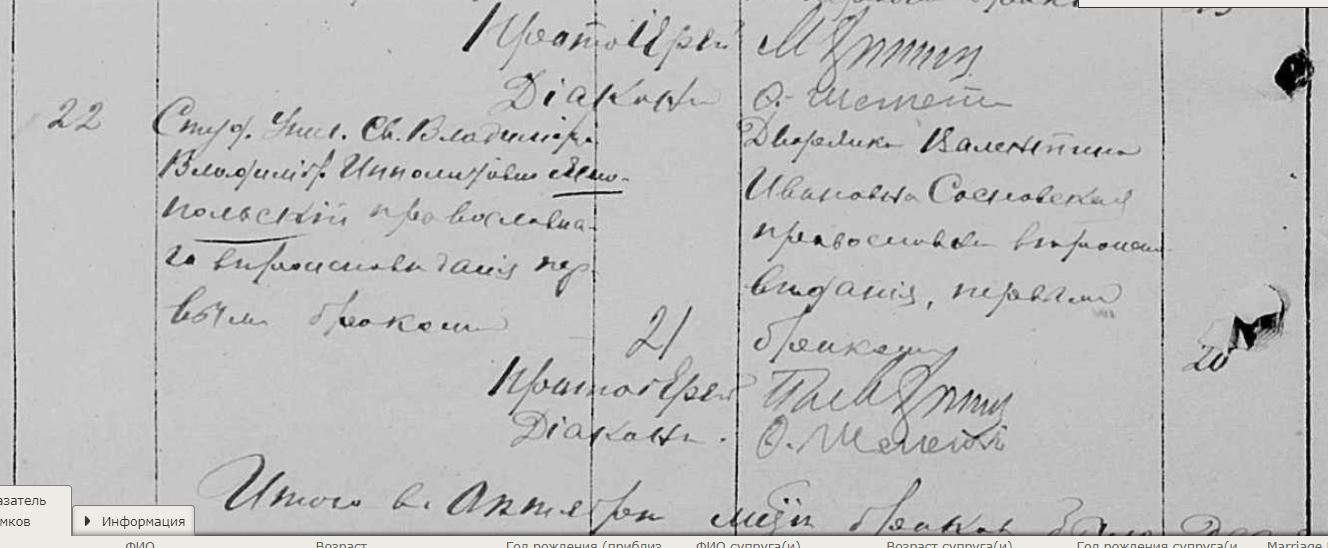 Протоіерей
Діаконъ
22
Студ. Унив. Св. Владиміра
Владиміръ Ипполитовичъ
польскій православна-
го вѣроисповѣданія пер-
вымъ бракомъ
21
Дворянка Валентина
Ивановна Сосновская
православн. вѣроиспо-
вѣданія, первымъ
бракомъ
20
Протоіерей
Діаконъ.
Итого въ Октябрѣ браковъ
азатель
мков
Информация
ФИО
Возраст
Год рождения (приблиз
ФИО супруга(и)
Возраст супруга(и)
Год рождения супруга(и
Marriage